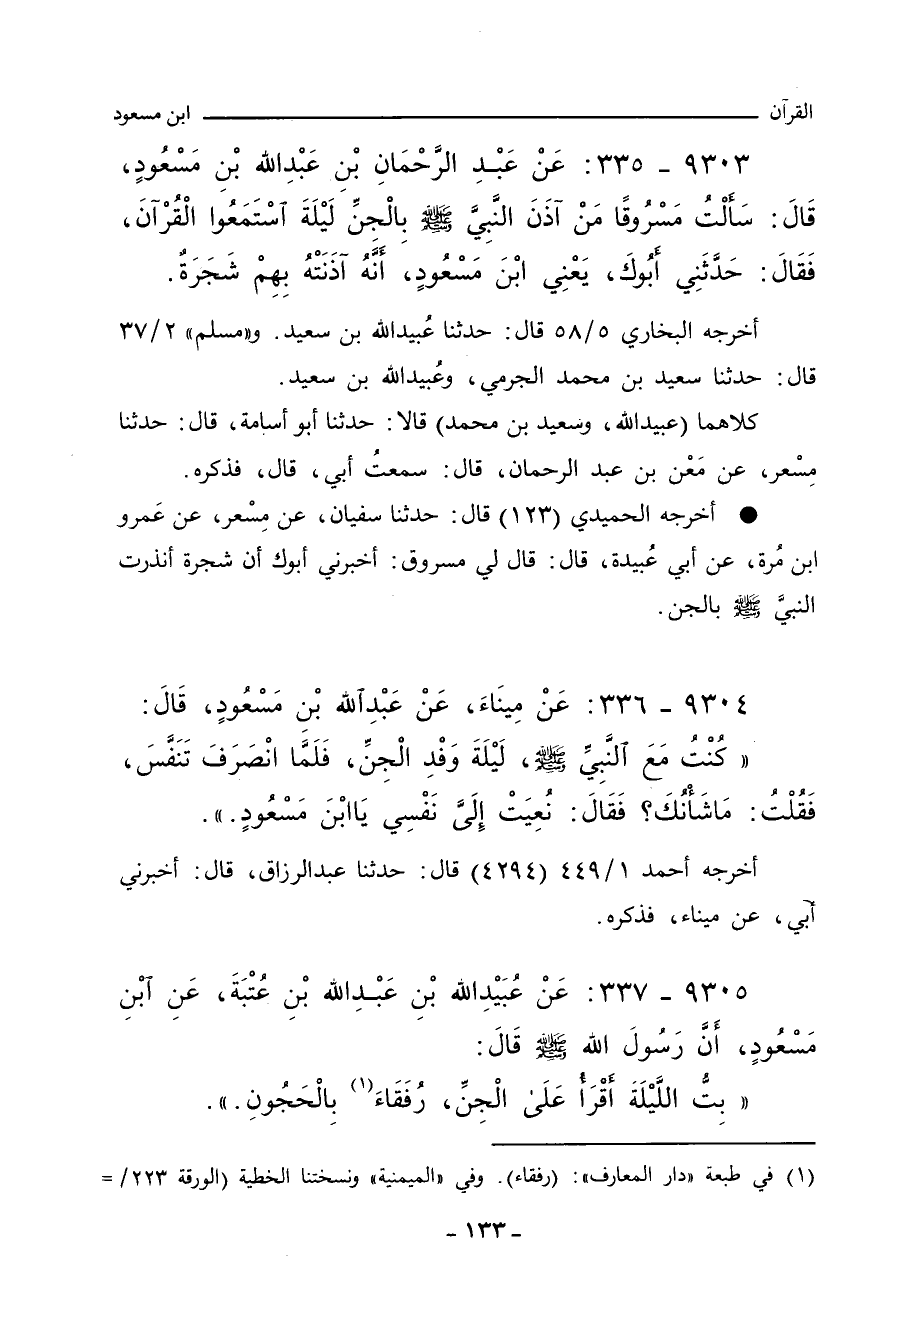 القرآن ابن مسعود
٩٣٠٣ ـ ٣٣٥: عَنْ عَبْدِ الرَّحْمَانِ بْنِ عَبْدِالله بْنِ مَسْعُودٍ،
قَالَ: سَأَلْتُ مَسْرُوقًا مَنْ آذَنَ النَّبِيَّ ﷺ بِالْجِنِّ لَيْلَةَ ٱسْتَمَعُوا الْقُرْآنَ،
فَقَالَ: حَدَّثَنِي أَبُوكَ، يَعْنِي ابْنَ مَسْعُودٍ، أَنَّهُ آذَنَتْهُ بِهِمْ شَجَرَةٌ.
أخرجه البخاري ٥٨/٥ قال: حدثنا عُبيدالله بن سعيد. و«مسلم» ٣٧/٢
قال: حدثنا سعيد بن محمد الجرمي، وعُبيدالله بن سعيد.
كلاهما (عبيدالله، وسعيد بن محمد) قالا: حدثنا أبو أسامة، قال: حدثنا
مِسْعر، عن مَعْن بن عبد الرحمان، قال: سمعتُ أبي، قال، فذكره.
● أخرجه الحميدي (١٢٣) قال: حدثنا سفيان، عن مِسْعر، عن عَمرو
ابن مُرة، عن أبي عُبيدة، قال: قال لي مسروق: أخبرني أبوك أن شجرة أنذرت
النبيَّ ﷺ بالجن.
٩٣٠٤ ـ ٣٣٦: عَنْ مِينَاءَ، عَنْ عَبْدِٱلله بْنِ مَسْعُودٍ، قَالَ:
« كُنْتُ مَعَ ٱلنَّبِيِّ ﷺ، لَيْلَةَ وَفْدِ الْجِنِّ، فَلَمَّا انْصَرَفَ تَنَفَّسَ،
فَقُلْتُ: مَاشَأْنُكَ؟ فَقَالَ: نُعِيَتْ إِلَىَّ نَفْسِي يَاابْنَ مَسْعُودٍ.».
أخرجه أحمد ٤٤٩/١ (٤٢٩٤) قال: حدثنا عبدالرزاق، قال: أخبرني
أبي، عن ميناء، فذكره.
٩٣٠٥ ـ ٣٣٧: عَنْ عُبَيْدِالله بْنِ عَبْدِالله بْنِ عُتْبَةَ، عَنِ ٱبْنِ
مَسْعُودٍ، أَنَّ رَسُولَ الله ﷺ قَالَ:
« بِتُّ اللَّيْلَةَ أَقْرَأُ عَلَىٰ الْجِنِّ، رُفَقَاءَ(١) بِالْحَجُونِ.».
(١) في طبعة «دار المعارف»: (رفقاء). وفي «الميمنية» ونسختنا الخطية (الورقة ٢٢٣/ =
ـ ١٣٣ ـ